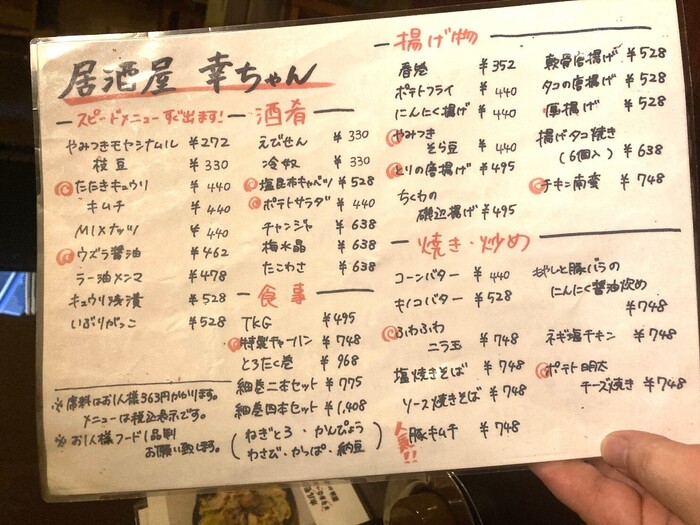 居酒屋 幸ちゃん
スピードメニューすぐ出ます!
やみつきモヤシナムル ¥272
枝豆 ¥330
たたきキュウリ ¥440
キムチ ¥440
MIXナッツ ¥440
ウズラ醤油 ¥462
ラー油メンマ ¥478
キュウリ浅漬 ¥528
いぶりがっこ ¥528
※席料はお1人様363円かかります。
メニューは税込表示です。
※お1人様フード1品制
お願い致します。
酒肴
えびせん ¥330
冷奴 ¥330
塩昆布キャベツ ¥528
ポテトサラダ ¥440
チャンジャ ¥638
梅水晶 ¥638
たこわさ ¥638
食事
TKG ¥495
特製チャーハン ¥748
とろたく巻 ¥968
細巻二本セット ¥775
細巻四本セット ¥1,408
(ねぎとろ・かんぴょう
わさび・かっぱ・納豆)
揚げ物
春巻 ¥352
ポテトフライ ¥440
にんにく揚げ ¥440
やみつき
そら豆 ¥440
とりの唐揚げ ¥495
ちくわの
磯辺揚げ ¥495
軟骨唐揚げ ¥528
タコの唐揚げ ¥528
厚揚げ ¥528
揚げタコ焼き
(6個入) ¥638
チキン南蛮 ¥748
焼き・炒め
コーンバター ¥440
キノコバター ¥528
ふわふわ
ニラ玉 ¥748
塩焼きそば ¥748
ソース焼きそば ¥748
人気!!
豚キムチ ¥748
もやしと豚バラの
にんにく醤油炒め
¥748
ネギ塩チキン ¥748
ポテト明太
チーズ焼き ¥748